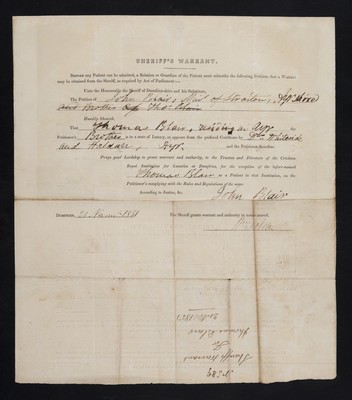 SHERIFF'S WARRANT.
BEFORE any Patient can be admitted, a Relation or Guardian of the Patient must subscribe the following Petition, that a Warrant
may be obtained from the Sheriff, as required by Act of Parliament:—
Unto the Honourable the Sheriff of Dumfries-shire and his Substitutes,
The Petition of John Blair, of Straiton, Ayrshire
and Brother of Thos. Blair
Humbly Sheweth,
That Thomas Blair, residing in Ayr the
Petitioner's Brother is in a state of lunacy, as appears from the prefixed Certificate by Drs.
and Haldane, Ayr and the Petitioner therefore
Prays your Lordship to grant warrant and authority, to the Trustees and Directors of the Crichton
Royal Institution for Lunatics at Dumfries, for the reception of the before-named
Thomas Blair as a Patient in that Institution, on the
Petitioner's complying with the Rules and Regulations of the same.
According to Justice, &c.
John Blair
DUMFRIES, 1851 The Sheriff grants warrant and authority in terms craved.
1851
Thomas Blair
for
Sheriff's Warrant